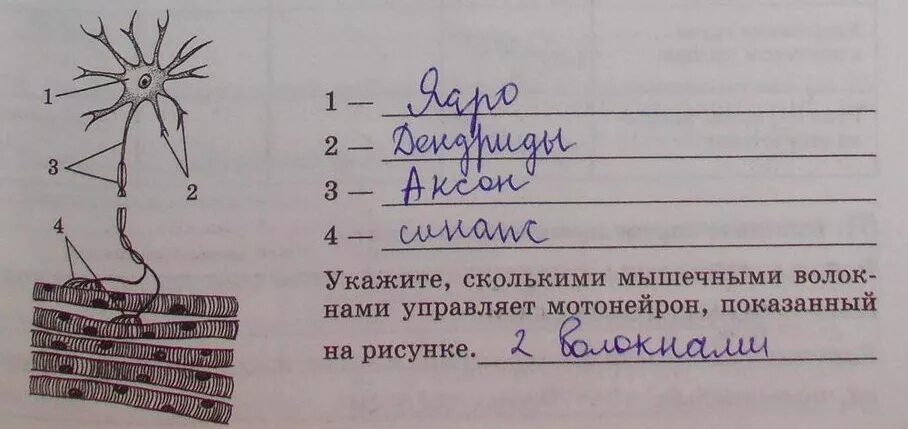 1
3
2
4
1 — Ядро
2 — Дендриды
3 — Аксон
4 — синапс
Укажите, сколькими мышечными волок-
нами управляет мотонейрон, показанный
на рисунке. 2 волокнами